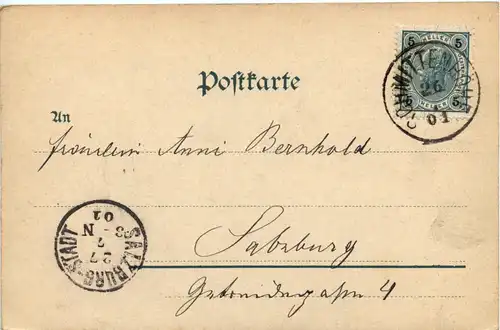 5 HELLER 5
5 HELLER 5
26
01
Postkarte
An
Fräulein Anni Bernhold
Salzburg
Getreidegasse 4
SALZBURG STADT
27
8-N
01